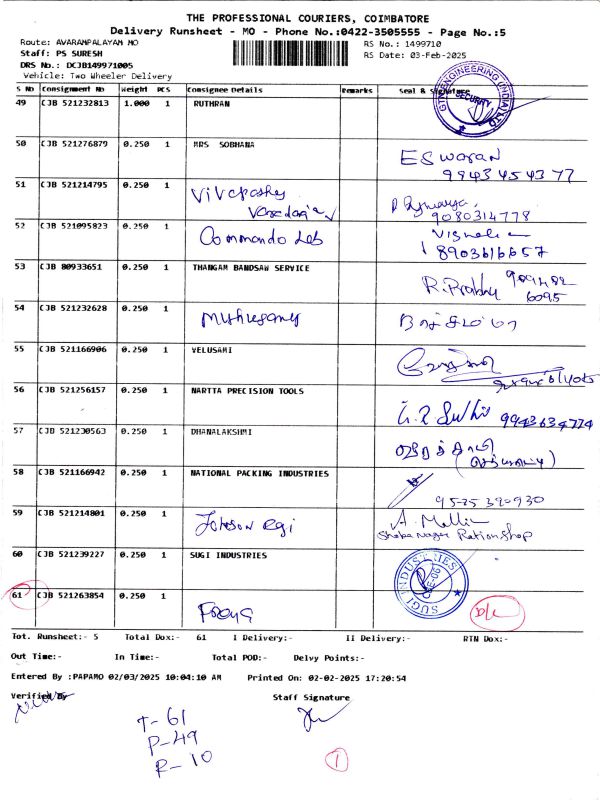 THE PROFESSIONAL COURIERS, COIMBATORE
Delivery Runsheet - MO - Phone No.:0422-3505555 - Page No.:5
Route: AVARAMPALAYAM MO RS No.: 1499710
Staff: PS SURESH RS Date: 03-Feb-2025
DRS No.: DCJB149971005
Vehicle: Two Wheeler Delivery
S No Consignment No Weight PCS Consignee Details Remarks Seal & Signature
49 CJB 521232813 1.000 1 RUTHRAN
GTN ENGINEERING (INDIA) LTD SECURITY
50 CJB 521276879 0.250 1 MRS SOBHANA
Eswaran
99434 54377
51 CJB 521214795 0.250 1
9080314778
52 CJB 521095823 0.250 1 Commando Lab
8903616657
53 CJB 80933651 0.250 1 THANGAM BANDSAW SERVICE
R. Prabhu
6095
54 CJB 521232628 0.250 1
55 CJB 521166906 0.250 1 VELUSAMI
56 CJB 521256157 0.250 1 NARTTA PRECISION TOOLS
9943634774
57 CJB 521230563 0.250 1 DHANALAKSHMI
58 CJB 521166942 0.250 1 NATIONAL PACKING INDUSTRIES
59 CJB 521214801 0.250 1 Johnson Regi
Shoba Nagar Ration Shop
60 CJB 521239227 0.250 1 SUGI INDUSTRIES
SUGI INDUSTRIES
61 CJB 521263854 0.250 1
D/L
Tot. Runsheet:- 5 Total Dox:- 61 I Delivery:- II Delivery:- RTN Dox:-
Out Time:- In Time:- Total POD:- Delvy Points:-
Entered By :PAPAMO 02/03/2025 10:04:10 AM Printed On: 02-02-2025 17:20:54
Verified By Staff Signature
T- 61
P- 49
R- 10
1